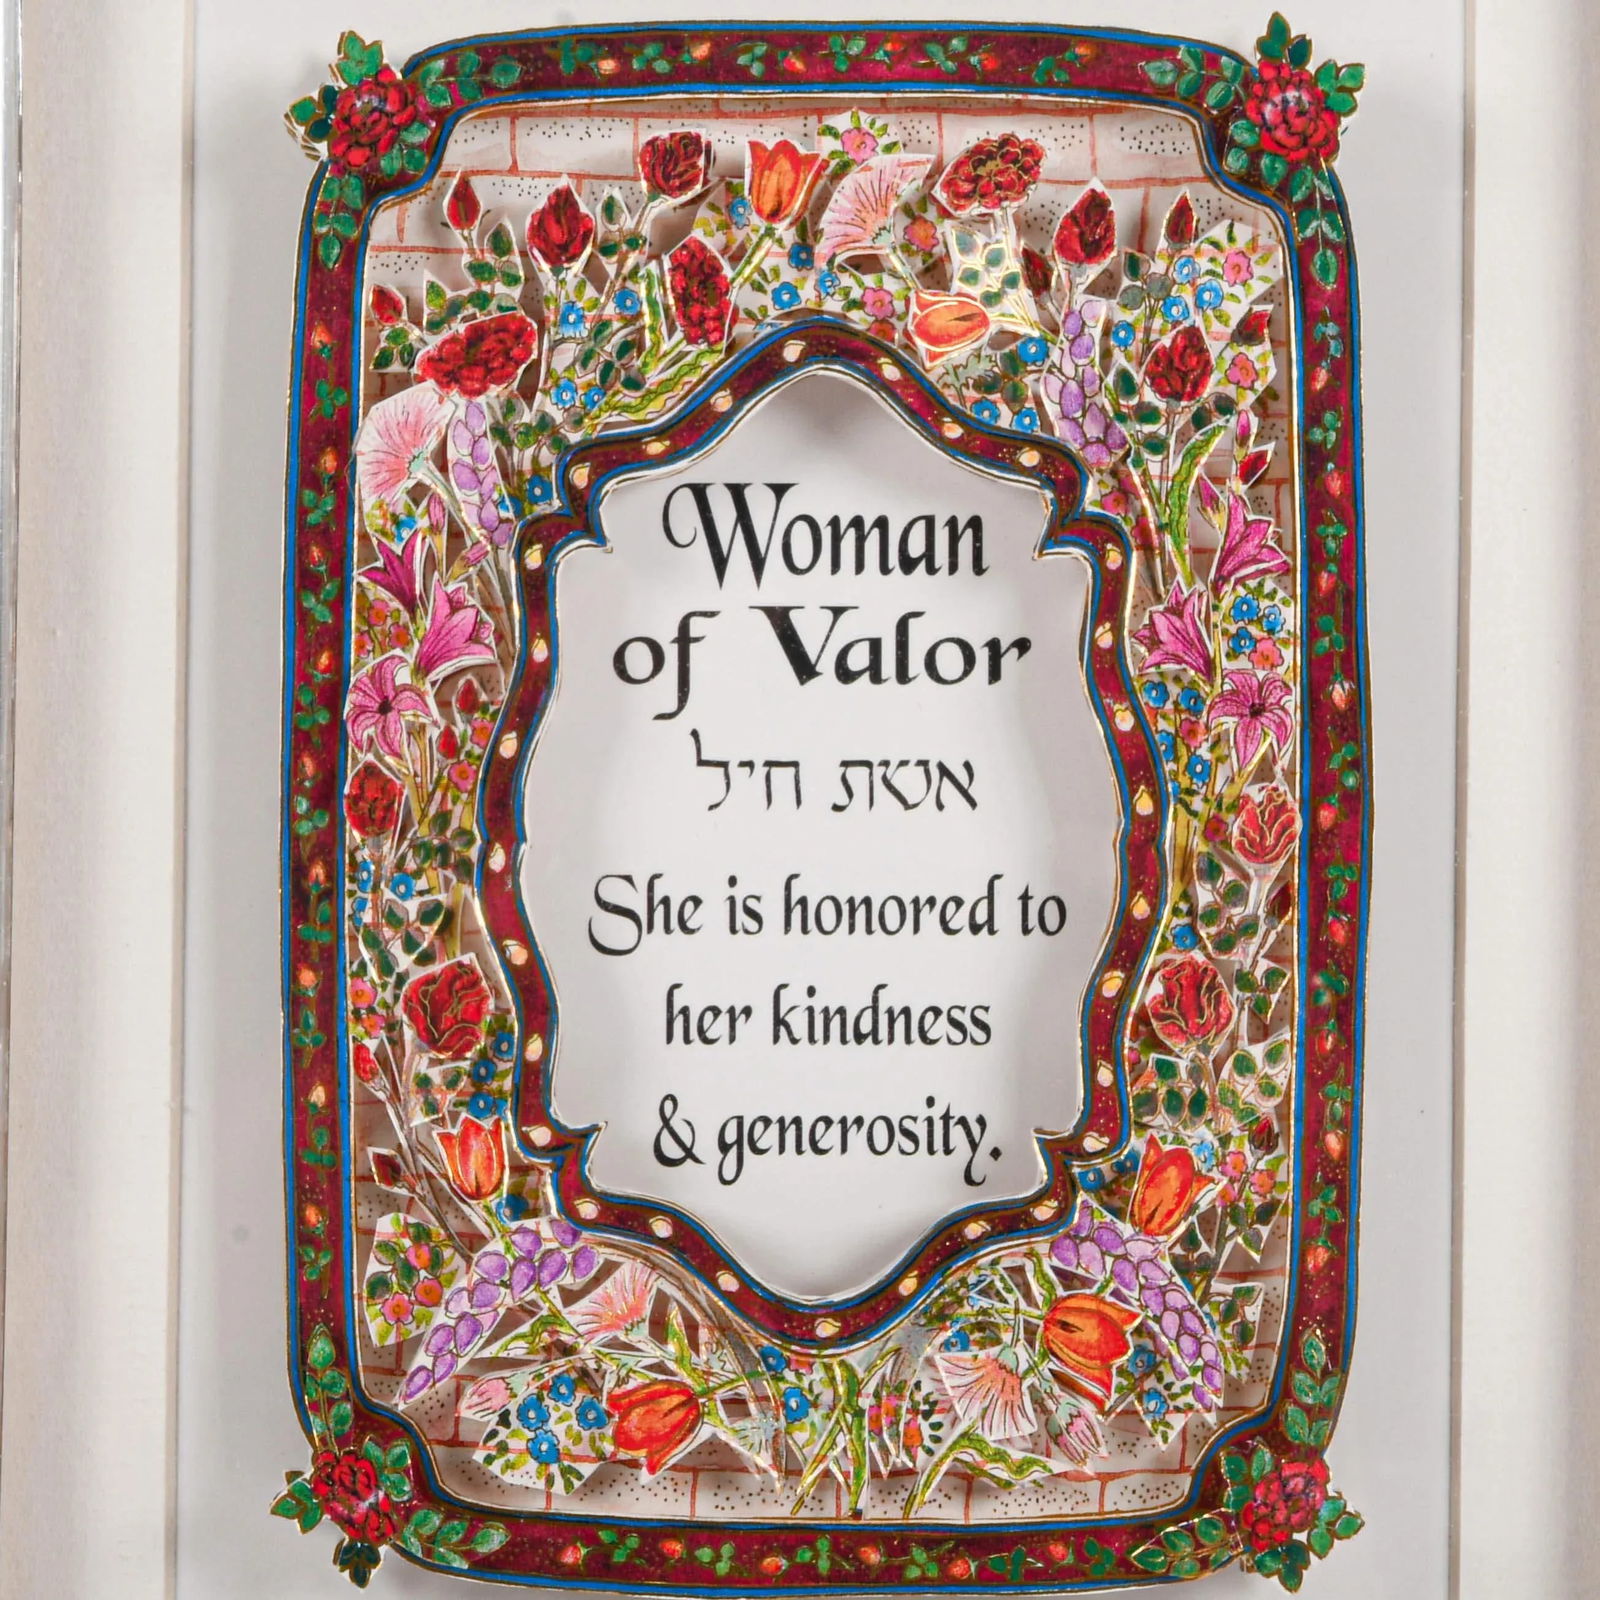 Woman
of Valor
אשת חיל
She is honored to
her kindness
& generosity.